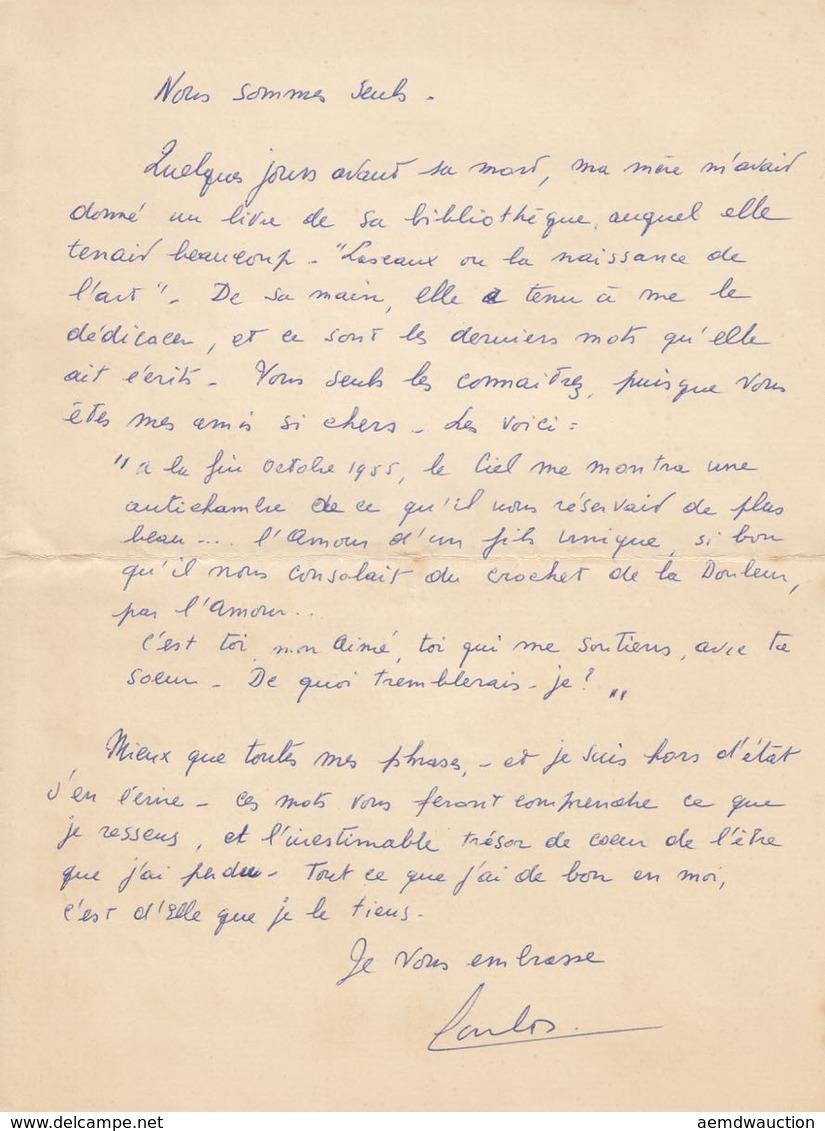 Nous sommes seuls -
Quelques jours avant sa mort, ma mère m'avait
donné un livre de sa bibliothèque, auquel elle
tenait beaucoup - "Lascaux ou la naissance de
l'art" - De sa main, elle a tenu à me le
dédicacer, et ce sont les derniers mots qu'elle
ait écrits - Vous seuls les connaitrez, puisque vous
êtes mes amis si chers - Les voici =
"a la fin Octobre 1955, le Ciel me montra une
antichambre de ce qu'il nous réservait de plus
beau .... l'Amour d'un fils unique, si bon
qu'il nous consolait du crochet de la Douleur,
par l'Amour...
C'est toi, mon Aimé, toi qui me soutiens, avec ta
soeur - De quoi tremblerais-je? "
Mieux que toutes mes phrases, - et je suis hors d'état
d'en écrire - ces mots vous feront comprendre ce que
je ressens, et l'inestimable trésor de coeur de l'être
que j'ai perdu - Tout ce que j'ai de bon en moi,
c'est d'Elle que je le tiens -
Je vous embrasse
www.delcampe.net
aemdwauction